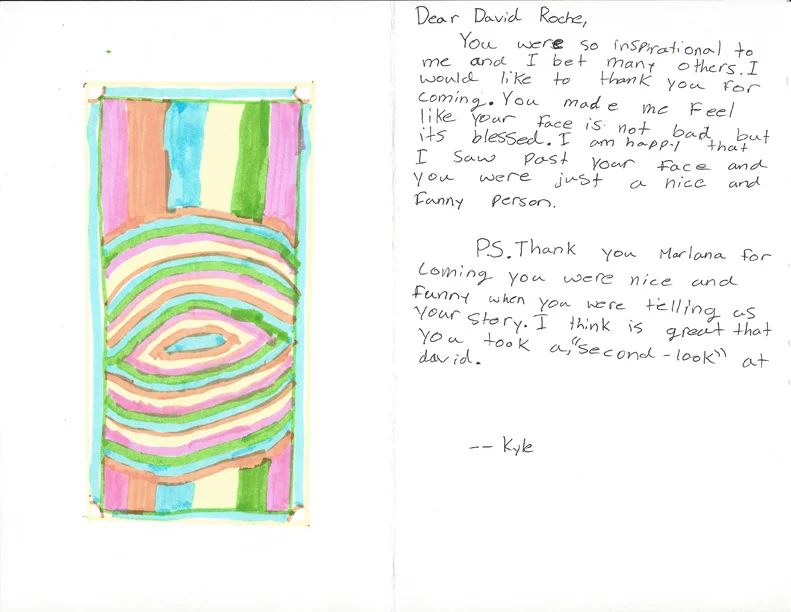 Dear David Roche,
You were so inspirational to
me and I bet many others. I
would like to thank you for
coming. You made me feel
like your face is not bad but
its blessed. I am happy that
I saw past your face and
you were just a nice and
funny person.
PS. Thank you Marlana for
coming you were nice and
funny when you were telling us
your story. I think is great that
you took a, "second-look" at
david.
-- Kyle